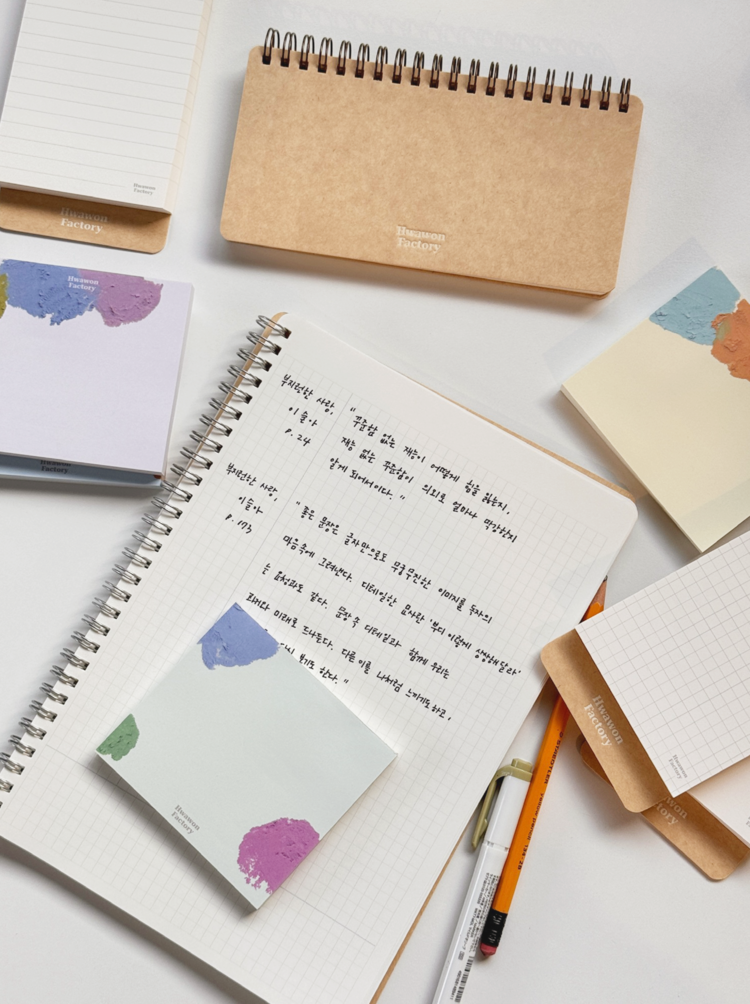 Hwawon
Factory
Hwawon
Factory
Hwawon
Factory
Hwawon
Factory
Hwawon Factory
부지런한 사랑,
이슬아
P. 24
" 꾸준함 없는 재능이 어떻게 힘을 잃는지,
재능 없는 꾸준함이 의외로 얼마나 막강한지
알게 되어서이다. "
부지런한 사랑,
이슬아
P. 173
" 좋은 문장은 글자만으로도 무궁무진한 이미지를 독자의
마음속에 그려낸다. 디테일한 묘사란 '부디 이렇게 상상해달라'
는 요청과도 같다. 문장 속 디테일과 함께 우리는
과거와 미래로 드나든다. 다른 이를 나처럼 느끼기도 하고,
보기도 한다. "
Hwawon
Factory
Hwawon
Factory
Hwawon
Factory